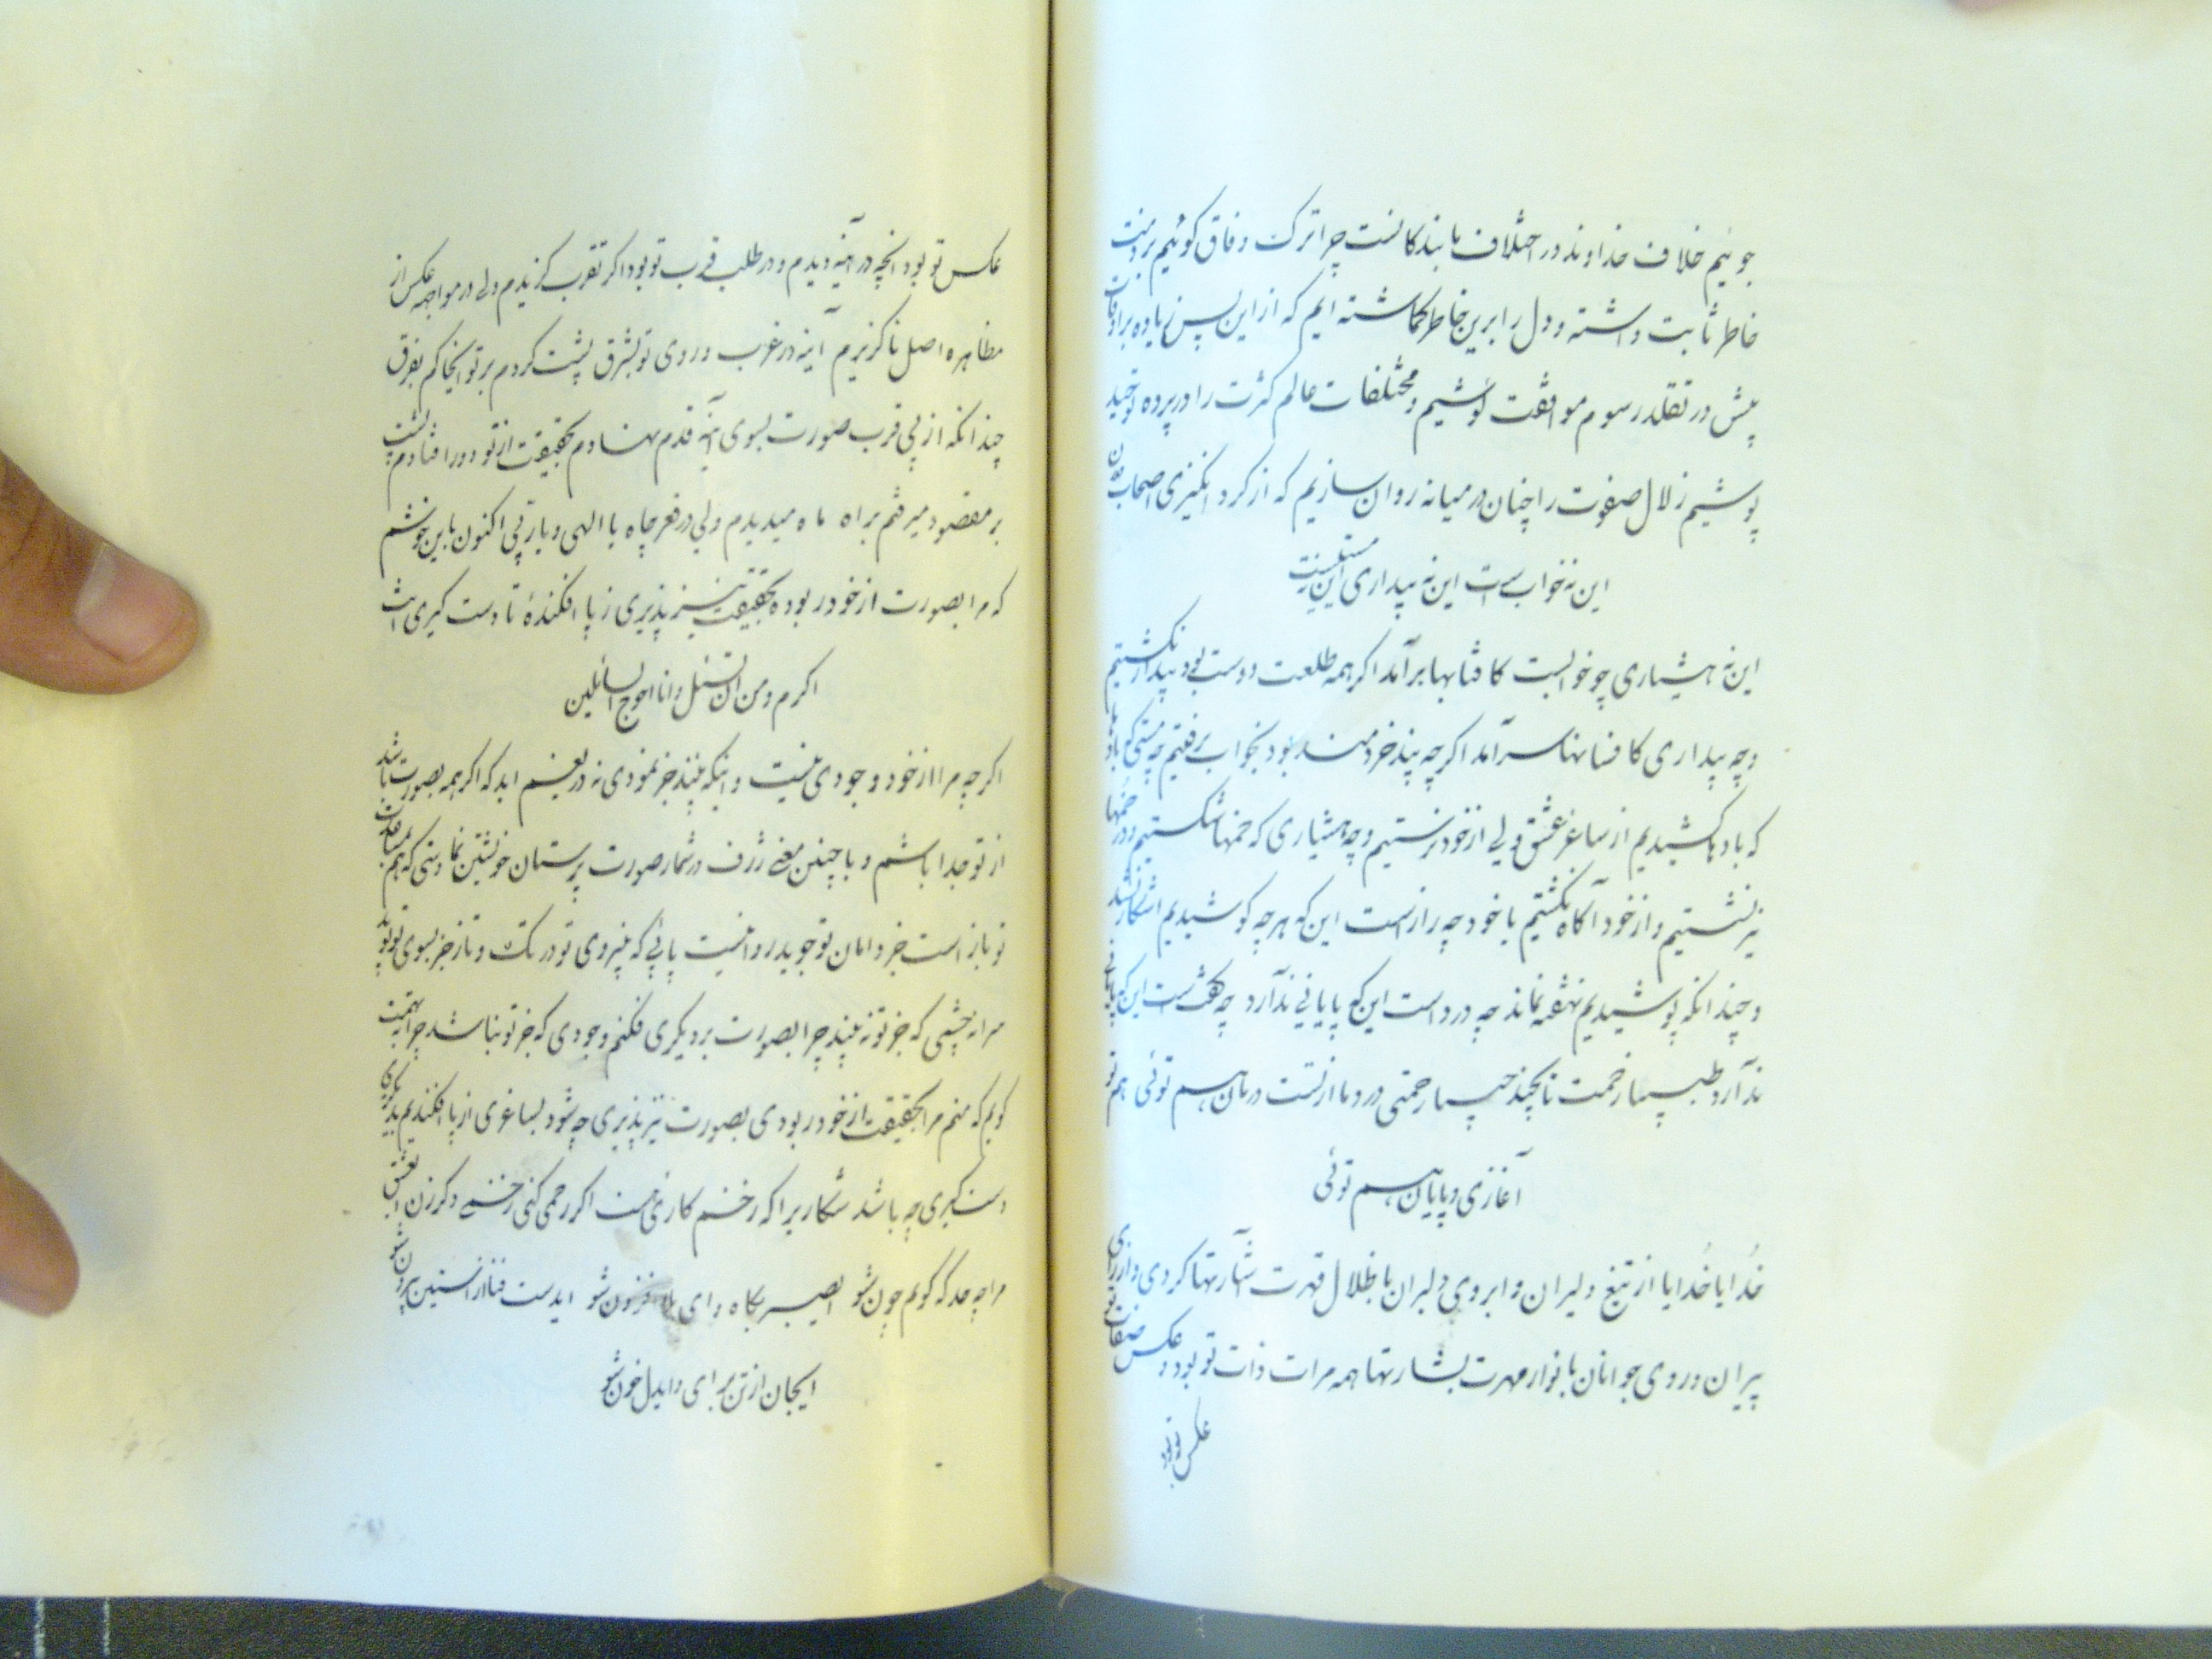 جوئیم خلاف خداوند در اختلاف با بندکانست چرا ترک وفاق کوئیم بر ذمت
خاطر ثابت داشته و دل را برین خاطر کماشته ایم که از این پس زیاده بر اوقات
پیش در تقلد رسوم موافقت کوشیم و مختلفات عالم کثرت را در پرده توحید
پوشیم زلال صفوت را چنان در میانه روان سازیم که از کرد انکیزی اصحاب
این نه خوابست این نه بیداری این نه مستیست
این نه هشیاری چو خوابست کافتابها برآمد اکر همه طلعت دوست بود بیدار نکشتیم
و چه بیداری کافسانها سرآمد اکر چه پند خردمند بود بخواب رفتیم چه مستی
که بادها کشیدیم از ساغر عشق ولی از خود نرستیم و چه هشیاری که خمها شکستیم و در خمها
نشستیم و از خود آکاه نکشتیم یا خود چه رازست این که هرچه کوشیدیم آشکار نشد
و چندانکه پوشیدیم نهفته نماند چه درد است این که پایانی ندارد چه
ندارد طبیبا زحمت تا بچند حبیبا رحمتی درد ما از تست درمان هم توئی هم تو
آغازی و پایان هم توئی
خدایا خدایا از تیغ دلیران و ابروی دلبران با ظلال قهرت اشارتها کردی و از
پیران و روی جوانان بانوار مهرت بشارتها همه مرات ذات تو بود و عکس صفات
عکس تو بود
عکس تو بود انچه در آینه دیدم و در طلب قرب تو بود اکر تقرب کزیدم ولی در مواجهه عکس از
مظاهره اصل ناکزیرم آینه در غرب و روی تو بشرق پشت کردم بر تو اینجا کم بفرق
چندانکه از پی قرب صورت بسوی آینه قدم نهادم بحقیقت از تو دور افتادم پشت
بر مقصود میرفتم براه ماه میدیدم ولی در قعر چاه یا الهی و یا رقی اکنون باین خوشم
که مرا بصورت از خود ربوده بحقیقت نیز پذیری ز پا افکندۀ تا دست کیری انت
اکرم و من ان تسئل و انا احوج السائلین
اکرچه مرا از خود وجودی نیست و اینکه بینند جز نمودی نه دریغم اید که اکر همه بصورت باشد
از تو جدا باشم و با چنین معنی ژرف در شمار صورت پرستان خویشتن نما دستی که هم
تو باز است جز دامان تو جوید روا نیست پائی که نیروی تو در تک و تاز جز بسوی تو پوید
مرا نه چشمی که جز تو نه بیند چرا بصورت بر دیکری فکنم وجودی که جز تو نباشد چرا
کویم که منم مرا بحقیقت از خود ربودی بصورت نیز پذیری چه شود بساغری از پا افکندیم
دست کیری چه باشد شکار یرا که زخم کاری هست اکر رحمی کنی زخمی دکر زن
مرا چه حد که کویم چون شو ایصبر بکاه و ای بلا فزون شو ایدست فنا از آستین برون شو
ایجان از تن برای و ایدل خون شو